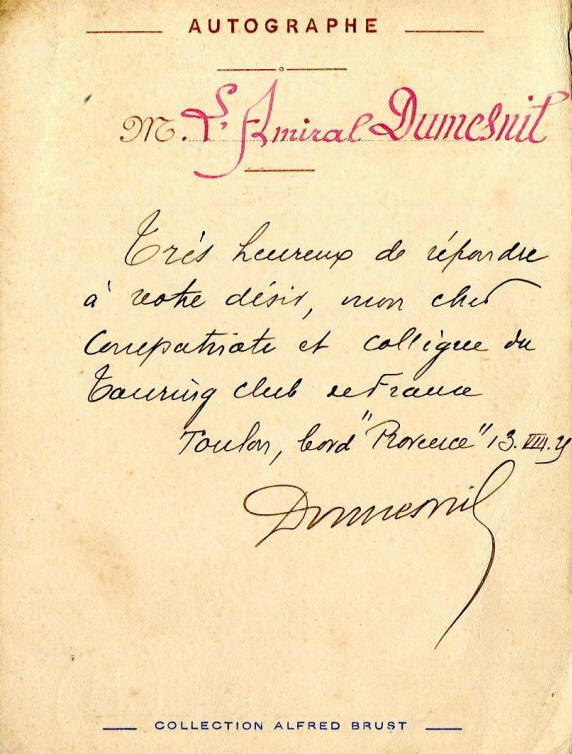 AUTOGRAPHE
M. L'Amiral Dumesnil
Très heureux de répondre
à votre désir, mon cher
Compatriote et collègue du
Touring club de France
Toulon, bord "Provence" 13.VIII.
Dumesnil
COLLECTION ALFRED BRUST